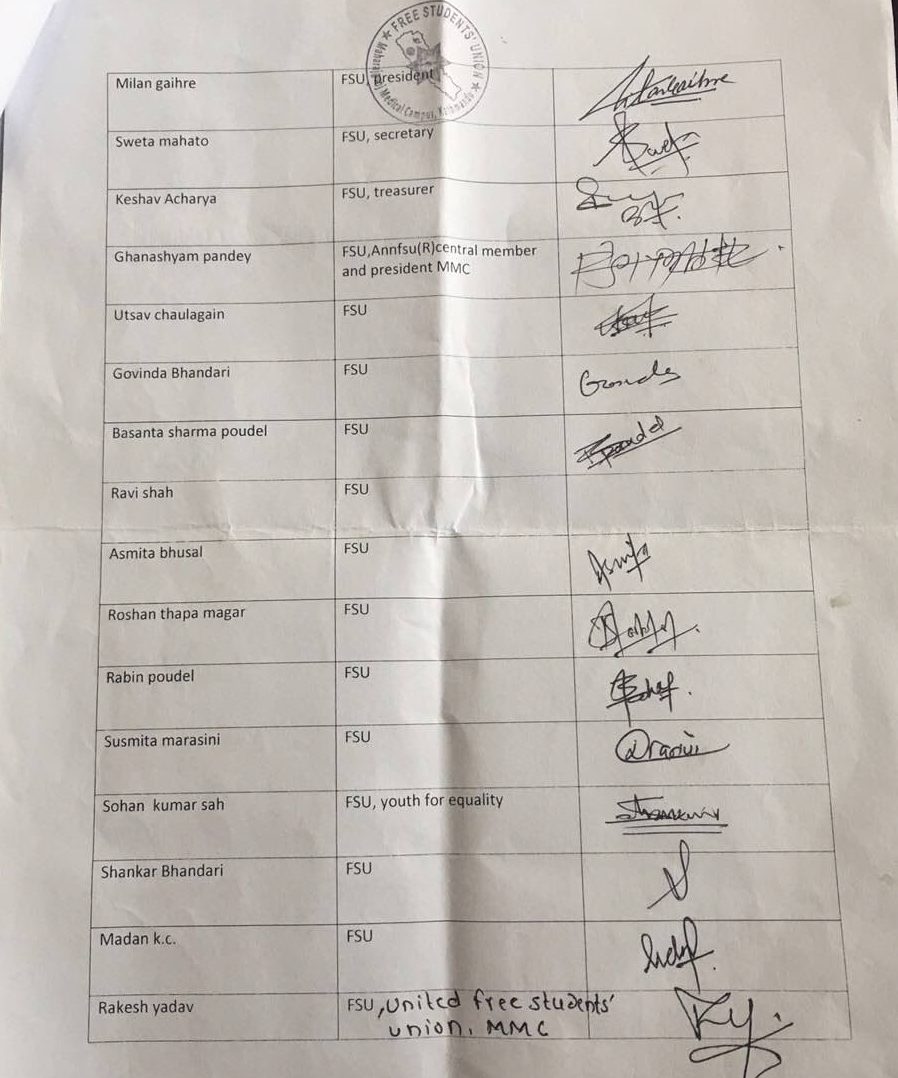 FREE STUDENTS' UNION
Medical Campus,
Milan gaihre FSU, president
Sweta mahato FSU, secretary
Keshav Acharya FSU, treasurer
Ghanashyam pandey FSU,Annfsu(R)central member
and president MMC
Utsav chaulagain FSU
Govinda Bhandari FSU
Basanta sharma poudel FSU
Ravi shah FSU
Asmita bhusal FSU
Roshan thapa magar FSU
Rabin poudel FSU
Susmita marasini FSU
Sohan kumar sah FSU, youth for equality
Shankar Bhandari FSU
Madan k.c. FSU
Rakesh yadav FSU, United free students'
union, MMC